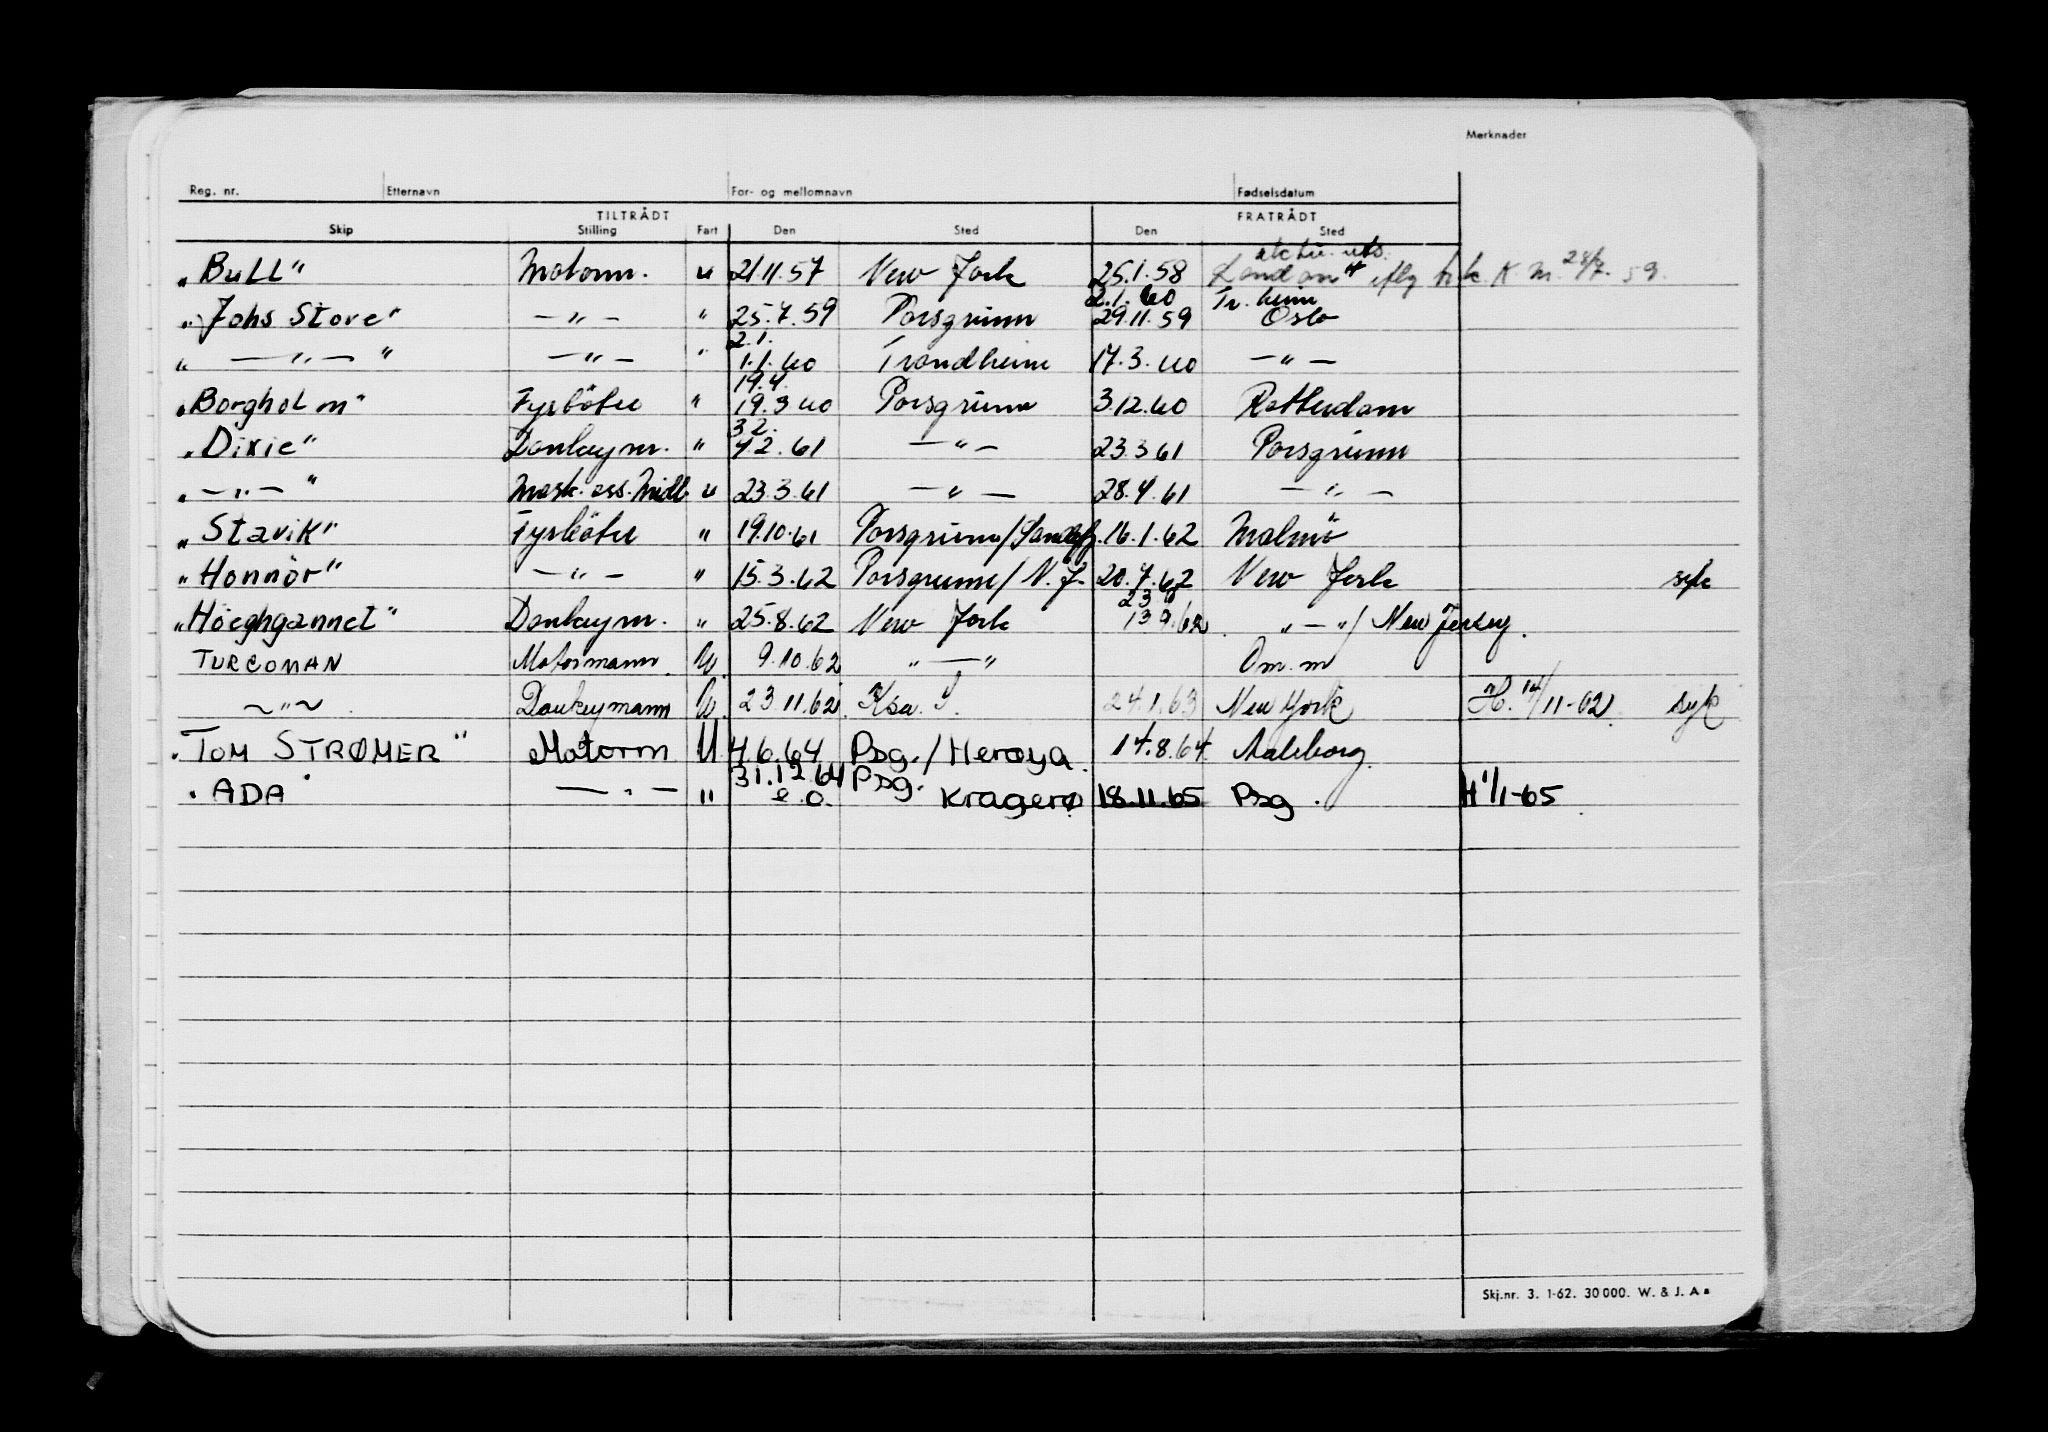 Merknader
Reg. nr. Etternavn For- og mellomnavn Fødselsdatum
TILTRÅDT FRATRÅDT
Skip Stilling Fart Den Sted Den Sted
"Bull" Motorm. u 21.11.57 New York 25.1.58 London 28/7.59
"Johs Stove" — " — " 25.7.59 Porsgrunn 2.1.60 29.11.59 Tr. heim Oslo
" — " — " — " — " 2.1. 1.1.60 Trondheim 17.3.60 — " —
"Borgholm" Fyrböter " 19.4. 19.3.60 Porsgrunn 3.12.60 Rotterdam
"Dixie" Donkeym. " 3.2. 4.2.61 — " — 23.3.61 Porsgrunn
" — " — " Mask. ass. Midl. u 23.3.61 — " — 28.4.61 — " —
"Stavik" Fyrböter " 19.10.61 Porsgrunn/Sandefj. 16.1.62 Malmö
"Honnör" — " — " 15.3.62 Porsgrunn/N.Y. 20.7.62 New York syk
"Höeghgannet" Donkeym. " 25.8.62 New York 13.9.62 " — "/New Jersey.
TURCOMAN Motormann U. 9.10.62 " — " Om. m
~ " ~ Donkeymann U. 23.11.62 24.1.63 New York H. 14/11-62 syk
"TOM STRØMER" Motorm U 4.6.64 Psg./Herøya. 14.8.64 Aalborg.
"ADA" — " — " 31.12.64 e.o. Psg. Kragerø 18.11.65 Psg. H 1/1-65
Skj.nr. 3. 1-62. 30 000. W. & J. A s